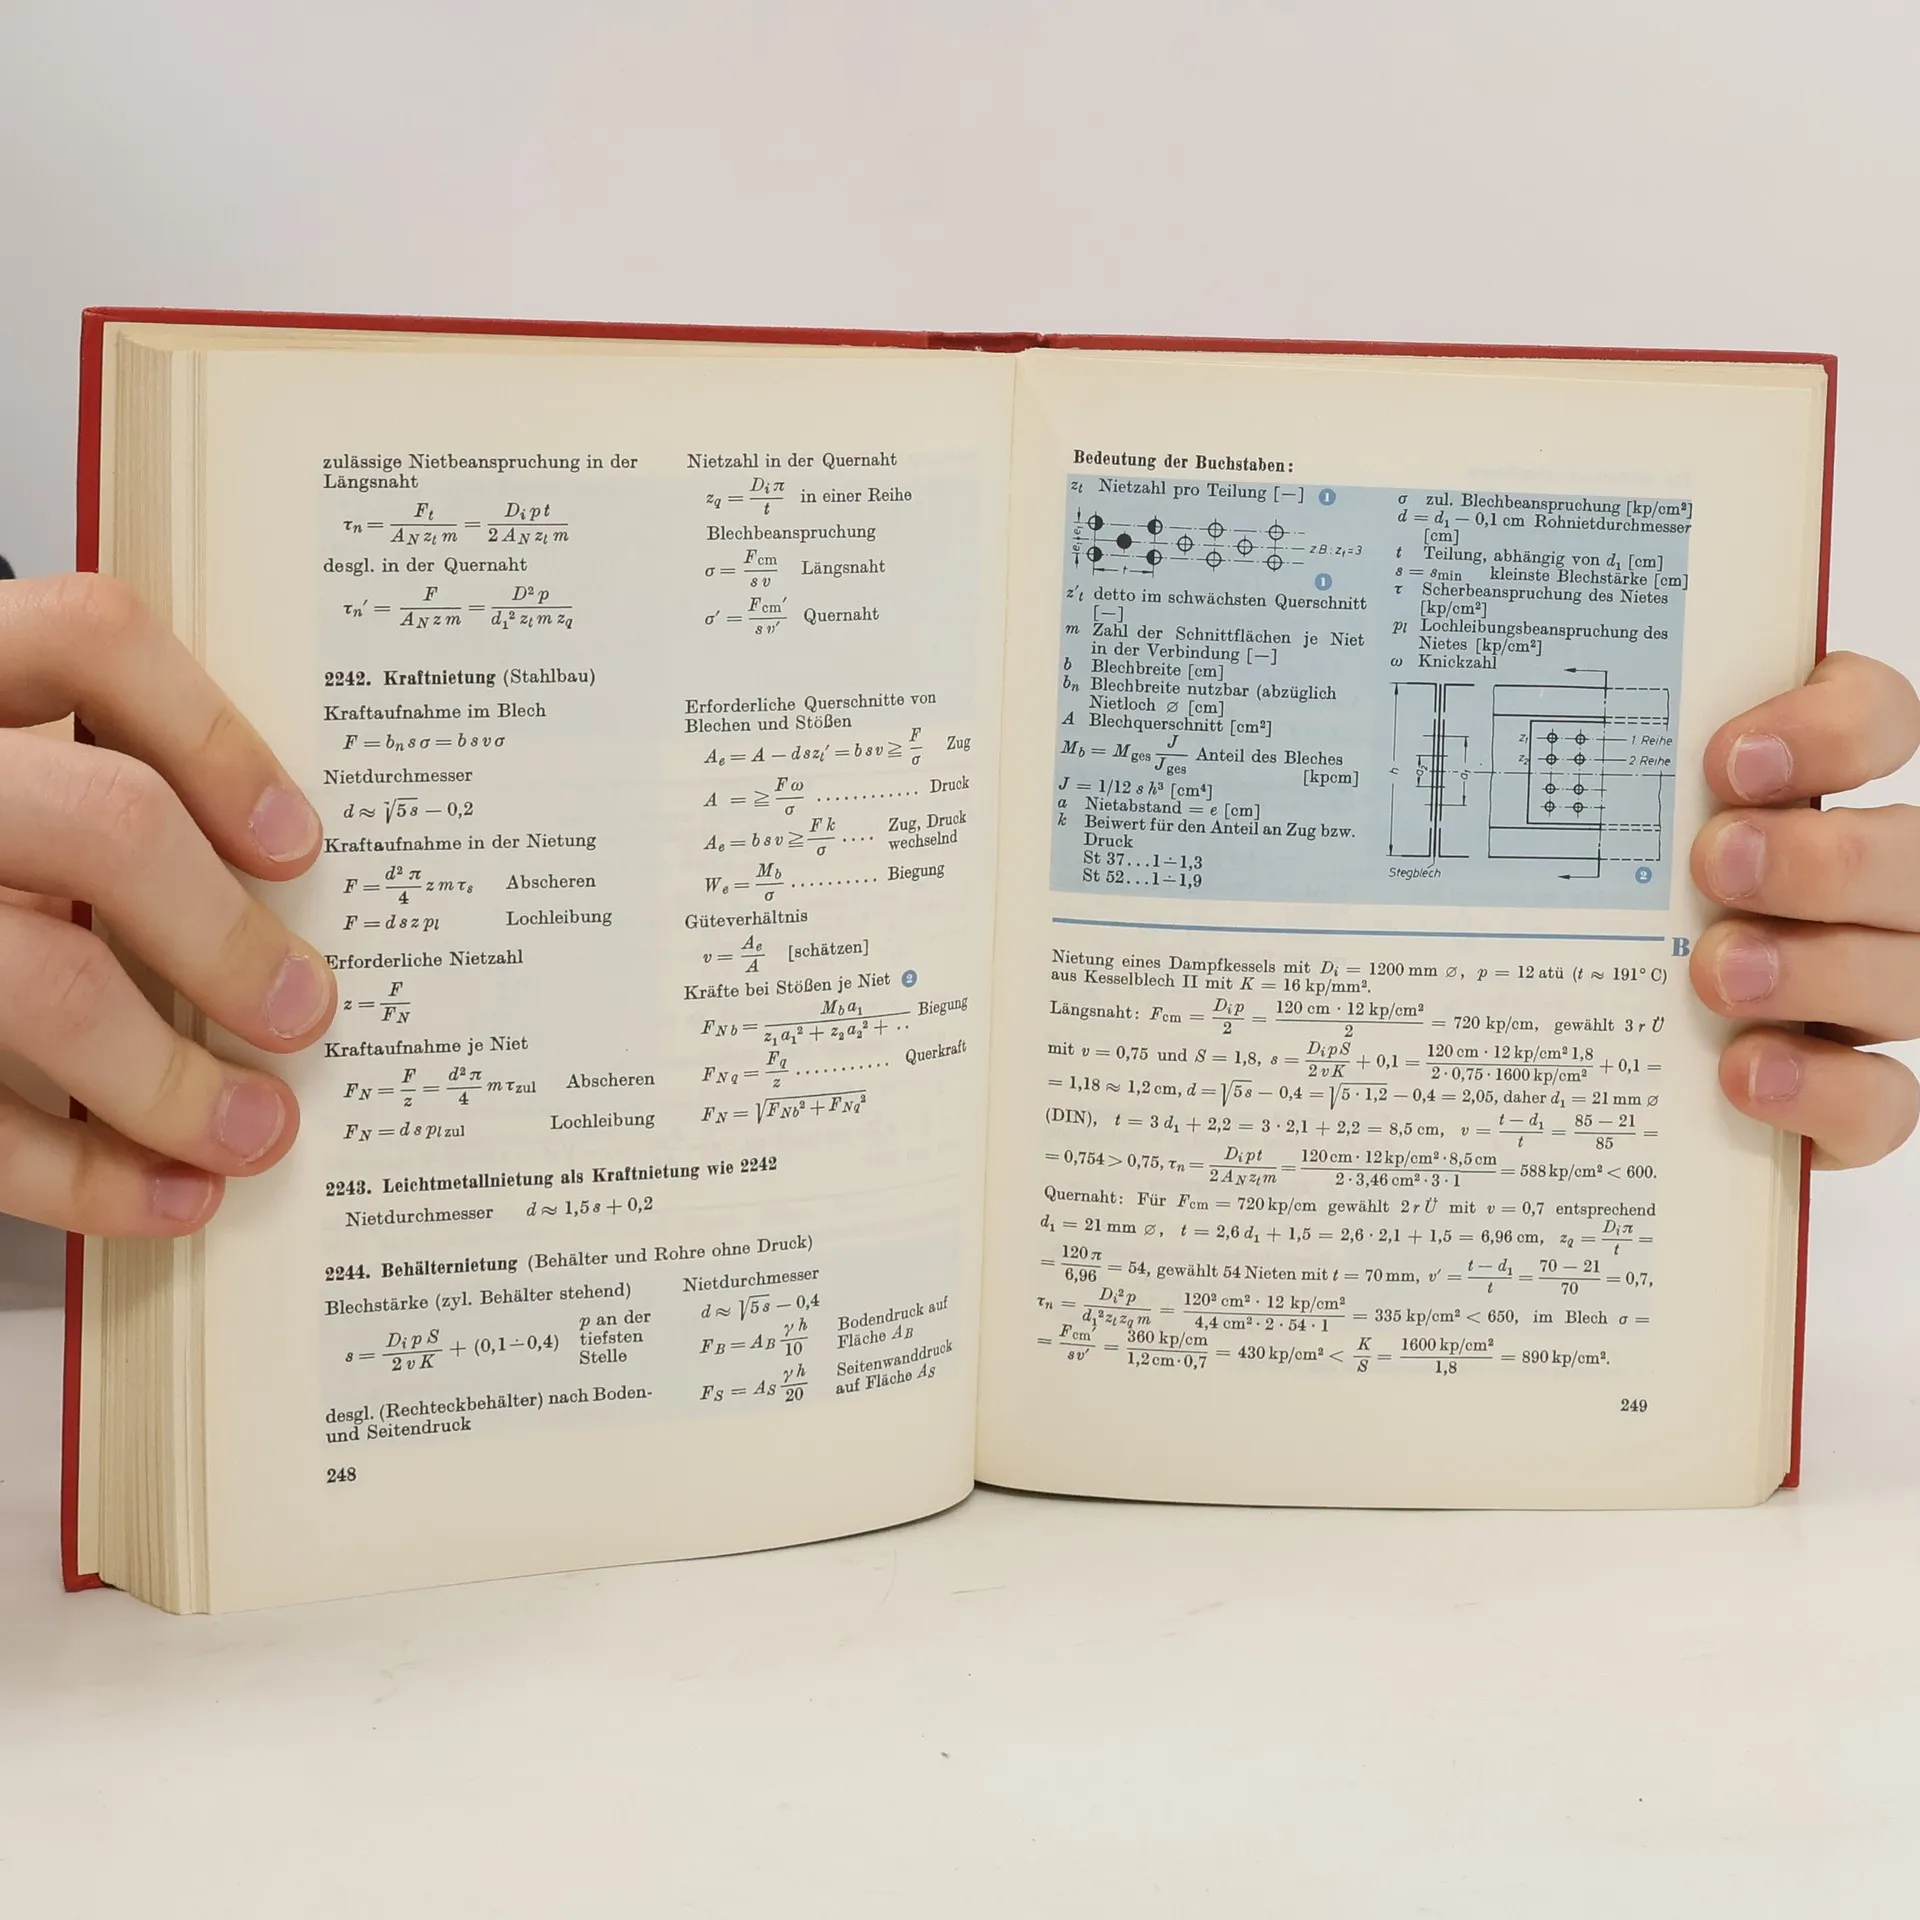 zulässige Nietbeanspruchung in der
Längsnaht
τn = Ft / (AN zt m) = Di p t / (2 AN zt m)
desgl. in der Quernaht
τn′ = F / (AN z m) = D² p / (d₁² zt m zq)
Nietzahl in der Quernaht
zq = Di π / t in einer Reihe
Blechbeanspruchung
σ = Fcm / (s v) Längsnaht
σ′ = Fcm′ / (s v′) Quernaht
2242. Kraftnietung (Stahlbau)
Kraftaufnahme im Blech
F = bn s σ = b s v σ
Nietdurchmesser
d ≈ √5 s − 0,2
Kraftaufnahme in der Nietung
F = d² π / 4 z m τs Abscheren
F = d s z pl Lochleibung
Erforderliche Nietzahl
z = F / FN
Kraftaufnahme je Niet
FN = F / z = d² π / 4 m τzul Abscheren
FN = d s pl zul Lochleibung
Erforderliche Querschnitte von
Blechen und Stößen
Ae = A − d s zt′ = b s v ≧ F / σ Zug
A = ≧ F ω / σ ............ Druck
Ae = b s v ≧ F k / σ .... Zug, Druck
wechselnd
We = Mb / σ .......... Biegung
Güteverhältnis
v = Ae / A [schätzen]
Kräfte bei Stößen je Niet 2
FNb = Mb a₁ / (z₁ a₁² + z₂ a₂² + ..) Biegung
FNq = Fq / z ........... Querkraft
FN = √FNb² + FNq²
2243. Leichtmetallnietung als Kraftnietung wie 2242
Nietdurchmesser d ≈ 1,5 s + 0,2
2244. Behälternietung (Behälter und Rohre ohne Druck)
Blechstärke (zyl. Behälter stehend)
s = Di p S / (2 v K) + (0,1÷0,4) p an der
tiefsten
Stelle
desgl. (Rechteckbehälter) nach Boden-
und Seitendruck
Nietdurchmesser
d ≈ √5 s − 0,4
FB = AB γ h / 10 Bodendruck auf
Fläche AB
FS = AS γ h / 20 Seitenwanddruck
auf Fläche AS
248
Bedeutung der Buchstaben:
zt Nietzahl pro Teilung [—] 1
z B: zt=3
t
1
z′t detto im schwächsten Querschnitt
[—]
m Zahl der Schnittflächen je Niet
in der Verbindung [—]
b Blechbreite [cm]
bn Blechbreite nutzbar (abzüglich
Nietloch ⌀ [cm]
A Blechquerschnitt [cm²]
Mb = Mges J / Jges Anteil des Bleches
[kpcm]
J = 1/12 s h³ [cm⁴]
a Nietabstand = e [cm]
k Beiwert für den Anteil an Zug bzw.
Druck
St 37...1÷1,3
St 52...1÷1,9
σ zul. Blechbeanspruchung [kp/cm²]
d = d₁ − 0,1 cm Rohnietdurchmesser
[cm]
t Teilung, abhängig von d₁ [cm]
s = smin kleinste Blechstärke [cm]
τ Scherbeanspruchung des Nietes
[kp/cm²]
pl Lochleibungsbeanspruchung des
Nietes [kp/cm²]
ω Knickzahl
z₁ 1. Reihe
z₂ 2 Reihe
h
Stegblech
2
B
Nietung eines Dampfkessels mit Di = 1200 mm ⌀, p = 12 atü (t ≈ 191° C)
aus Kesselblech II mit K = 16 kp/mm².
Längsnaht: Fcm = Di p / 2 = 120 cm · 12 kp/cm² / 2 = 720 kp/cm, gewählt 3 r Ü
mit v = 0,75 und S = 1,8, s = Di p S / (2 v K) + 0,1 = 120 cm · 12 kp/cm² 1,8 / (2 · 0,75 · 1600 kp/cm²) + 0,1 =
= 1,18 ≈ 1,2 cm, d = √5 s − 0,4 = √5 · 1,2 − 0,4 = 2,05, daher d₁ = 21 mm ⌀
(DIN), t = 3 d₁ + 2,2 = 3 · 2,1 + 2,2 = 8,5 cm, v = (t − d₁) / t = (85 − 21) / 85 =
= 0,754 > 0,75, τn = Di p t / (2 AN zt m) = 120 cm · 12 kp/cm² · 8,5 cm / (2 · 3,46 cm² · 3 · 1) = 588 kp/cm² < 600.
Quernaht: Für Fcm = 720 kp/cm gewählt 2 r Ü mit v = 0,7 entsprechend
d₁ = 21 mm ⌀, t = 2,6 d₁ + 1,5 = 2,6 · 2,1 + 1,5 = 6,96 cm, zq = Di π / t =
= 120 π / 6,96 = 54, gewählt 54 Nieten mit t = 70 mm, v′ = (t − d₁) / t = (70 − 21) / 70 = 0,7,
τn = Di² p / (d₁² zt zq m) = 120² cm² · 12 kp/cm² / (4,4 cm² · 2 · 54 · 1) = 335 kp/cm² < 650, im Blech σ =
= Fcm′ / (s v′) = 360 kp/cm / (1,2 cm · 0,7) = 430 kp/cm² < K / S = 1600 kp/cm² / 1,8 = 890 kp/cm².
249